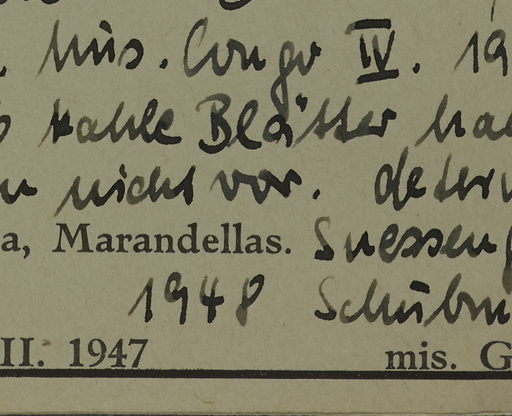 . Mus. Congo IV. 19
kahle Blätter ha
nicht vor. deter
a, Marandellas. Suesseng
1948 Schübm
II. 1947 mis. G